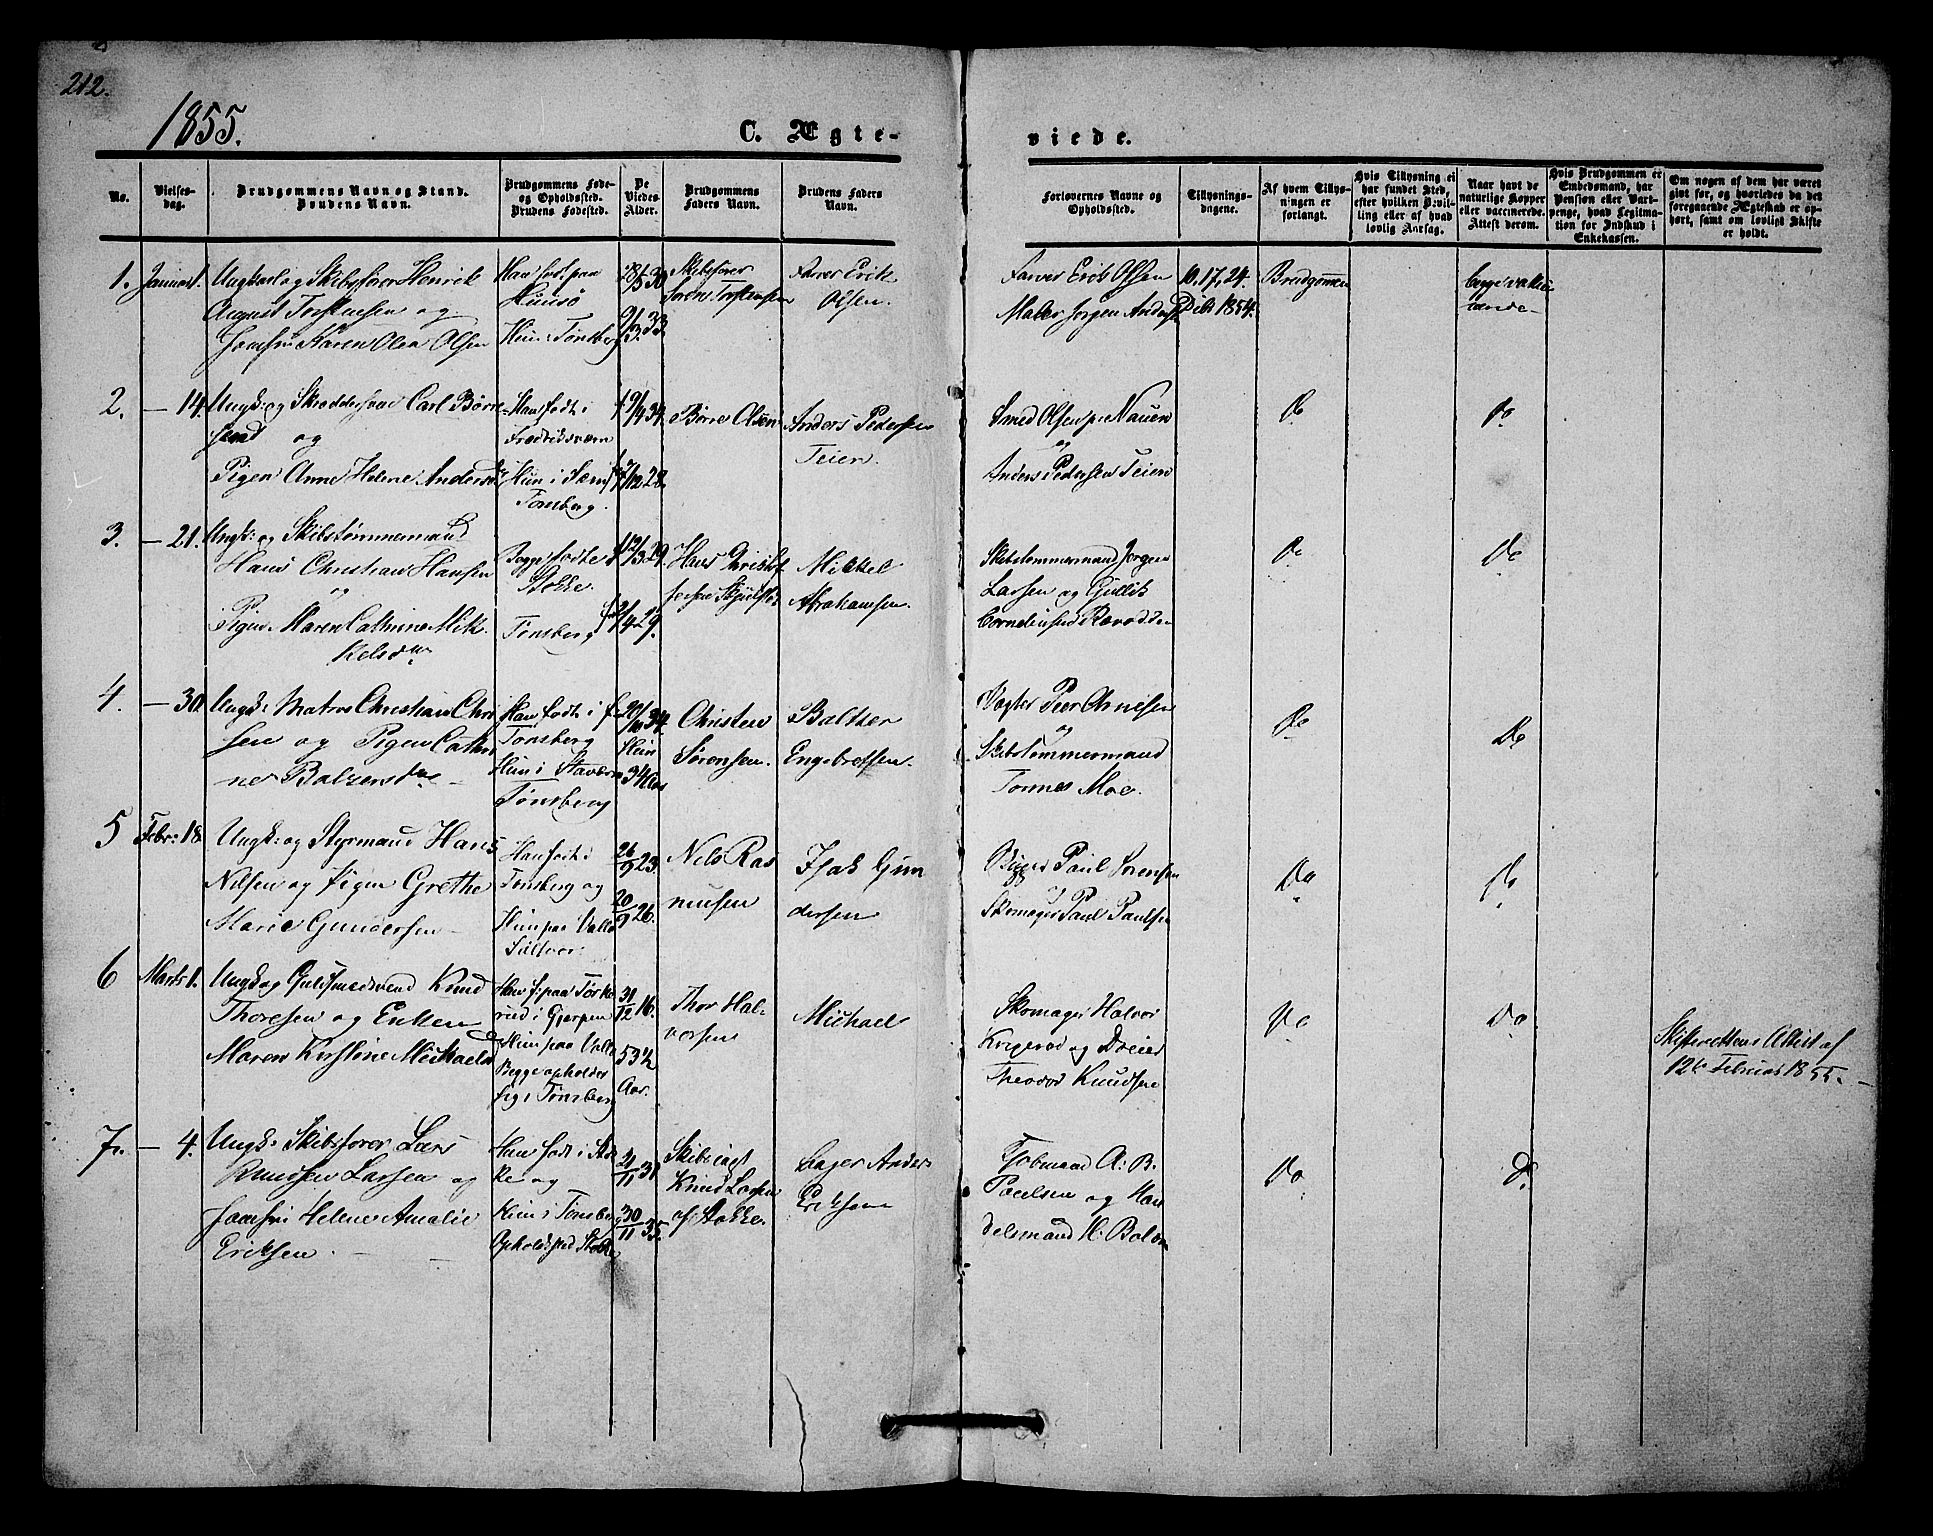 212.
1855.
C. Ægte-
viede.
No.
Vielses-
dag.
Brudgommens Navn og Stand.
Brudens Navn.
Brudgommens Føde-
og Opholdssted.
Brudens Fødested.
De
Viedes
Alder.
Brudgommens
Faders Navn.
Brudens Faders
Navn.
Forlovernes Navne og
Opholdssted.
Tillysnings-
dagene.
Af hvem Tillys-
ningen er
forlangt.
Hvis Tillysning ei
har fundet Sted,
efter hvilken Bevil-
ling eller af hvad
lovlig Aarsag.
Naar havt de
naturlige Kopper
eller vaccinerede.
Attest derom.
Hvis Brudgommen er
Embedsmand, har
Pension eller Vart-
penge, hvad Legitima-
tion for Indskud i
Enkekassen.
Om nogen af dem har været
gift før, og hvorledes da det
foregaaende Ægteskab er op-
hørt, samt om lovligt Skifte
er holdt.
1.
Januar 1.
Ungkarl og Skibsfører Henrik
August Torstensen og
Jomfru Karen Olea Olsen
Han født paa
Hun i Tønsberg
28/5 30
9/3. 33.
Skibsfører
Søren Torstensen
Farver Erik
Olsen.
Farver Erik Olsen
Maler Jørgen Anders
10. 17, 24.
Dcbr 1854.
Brudgommen
begge vakci-
nerede
2.
— 14.
Ungk: og Skrædersvend Carl Børre-
sen og
Pigen Anne Helene Anders
Han født i
Fredriksværn
Hun i Sem
Tønsberg.
19/9 34.
/12 28.
Børre Olsen
Anders Pedersen
Teien.
Smed Olsen p: Nauen
og
Anders Pedersen Teien
Do
Do
3.
— 21.
Ungk: og Skibstømmermand
Hans Christian Hansen
og
Pigen Maren Cathrine Mik-
kelsdtr
Begge fødte i
Stokke.
Tønsberg
12/3 29.
/4 29.
Hans Christof
fersen
Mikkel
Abrahamsen.
Skibstømmermand Jørgen
Larsen og Gullik
Corneliusen Ravodden
Do
Do
4.
— 30.
Ungk: Matros Christian Chri
sen og Pigen Cathri
ne Balzersdtr —
Han født i
Tønsberg
Hun i Stavern
Tønsberg
20/10 34.
Hun
34 Aar
Christen
Sørensen.
Baltzer
Engebretsen.
Vægter Peer Arnesen
og
Skibstømmermand
Tønnes Moe.
Do
Do
5
Febr: 18
Ungk: og Styrmand Hans
Nilsen og Pigen Grethe
Marie Gundersen —
Han født i
Tønsberg og
Hun paa Vallø
Saltver:
26/9 23.
20/9 26.
Nels Ras
mussen
Isak Gun
dersen
Rigger Paul Sørensen
og
Skomager Paul Paulsen
Do
Do
6
Marts 1.
Ungk og Guldsmedsvend Knud
Thoresen og Enken
Maren Kirstine Michaelsd
Han f: paa Tørke
rud i Gjerpen
Hun paa Vallø
Begge opholder
sig i Tønsberg
31/12 16.
53 1/2
Aar.
Thor Hal-
vorsen
Michael
Skomager Halvor
Krogerød og Dreier
Theodor Knudsen
Do
Do
Skifterettens Attest af
12te Februar 1855. —
7.
— 4.
Ungk: Skibsfører Lars
Knudsen Larsen og
Jomfru Helene Amalie
Eriksen. —
Han født i Stok
ke og
Hun i Tønsberg
Opholdsted Stokke
21/11 31
30/11 35.
Knud Larsen
af Stokke.
Bager Anders
Eriksen
Tobmand A: B.
Poulsen og Han
delsmand H: Bolven
Do
Do